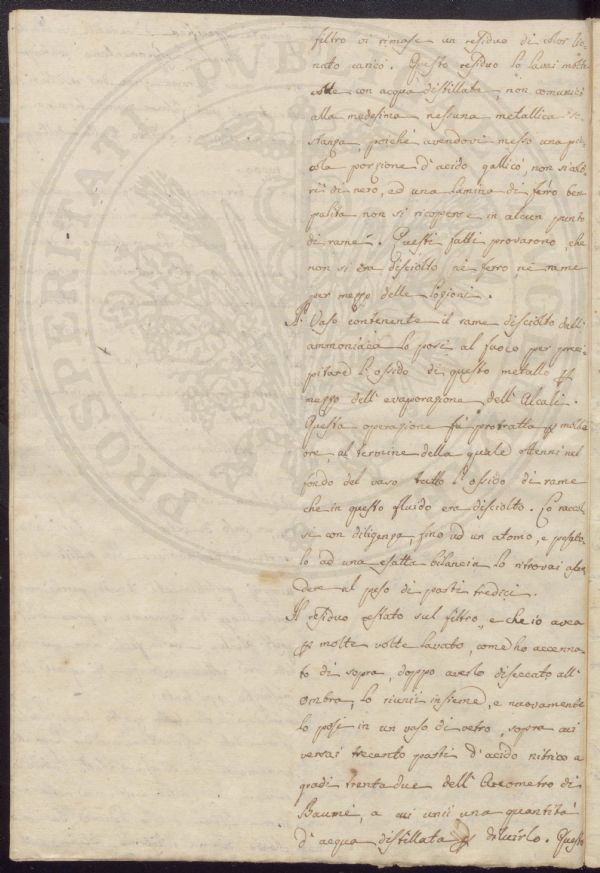 filtro vi rimase un residuo di color lio-
nato carico. Questo residuo lo lavai molte
volte con acqua distillata, non comunicò
alla medesima nessuna metallica so-
stanza, poichè avendovi messo una pic-
cola porzione d'acido gallico, non si colo-
rì di nero, ed una lamina di ferro ben
pulita non si ricoperse in alcun punto
di rame. Questi fatti provarono, che
non si era disciolto nè ferro, nè rame
per mezzo delle lozioni.
Il Vaso contenente il rame disciolto dall'
ammoniaca lo posi al fuoco per preci-
pitare l'ossido di questo metallo
mezzo dell'evaporazione dell'Alcali.
Questa operazione fù protratta molte
ore, al termine della quale ottenni nel
fondo del vaso tutto l'ossido di rame
che in questo fluido era disciolto. Lo raccol-
si con diligenza, fino ad un atomo, e pesato-
lo ad una esatta bilancia lo ritrovai ascen-
dere al peso di parti tredici.
Il residuo restato sul filtro, e che io avea
molte volte lavato, come ho accenna-
to di sopra, doppo averlo diseccato all'
ombra, lo riunii insieme, e nuovamente
lo posi in un vaso di vetro, sopra cui
versai trecento parti d'acido nitrico a
gradi trentadue dell'Areometro di
Baumé, a cui unii una quantità
d'acqua distillata diluirlo. Questo
PROSPERITATI PUBLICAE